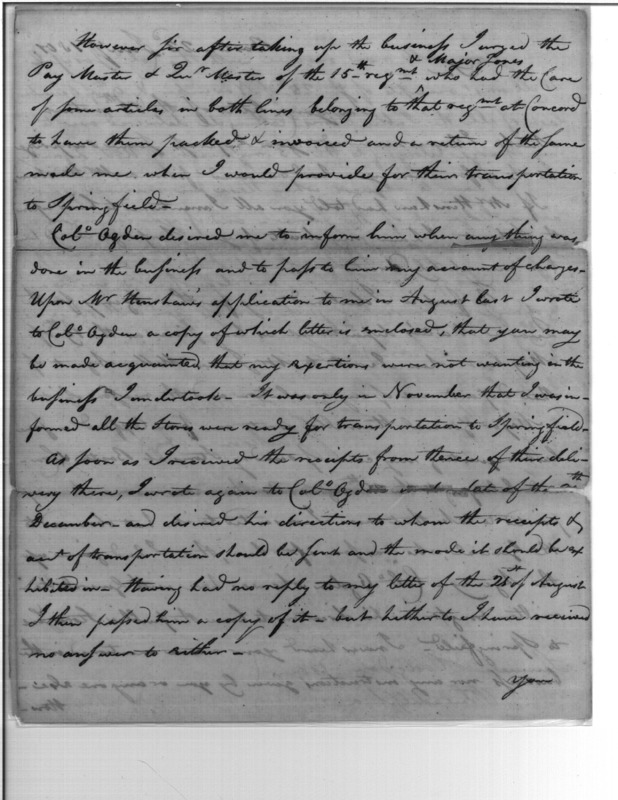 However sir after taking up the business I urged the
Pay Master & Qur Master of the 15th regmt & Major Jones who had the Care
of some articles in both lines belonging to that regmt at Concord
to have them packed & invoiced and a return of the same
made me, when I would provide for their transportation
to Springfield—
Colo. Ogden desired me to inform him when any thing was
done in the business and to pass to him my account of charges—
Upon Mr Henshaw's application to me in August last I wrote
to Colo. Ogden a copy of which letter is enclosed, that you may
be made acquainted that my exertions were not wanting in the
business I undertook— It was only in November that I was in-
formed all the stores were ready for transportation to Springfield—
As soon as I received the receipts from thence of their deli-
very there, I wrote again to Colo. Ogden date of the
December— and desired his directions to whom the receipts &
acct of transportation should be sent and the mode it should be ex
hibited in— Having had no reply to my letter of the 21st of August
I then passed him a copy of it— but hitherto I have received
no answer to either—
You